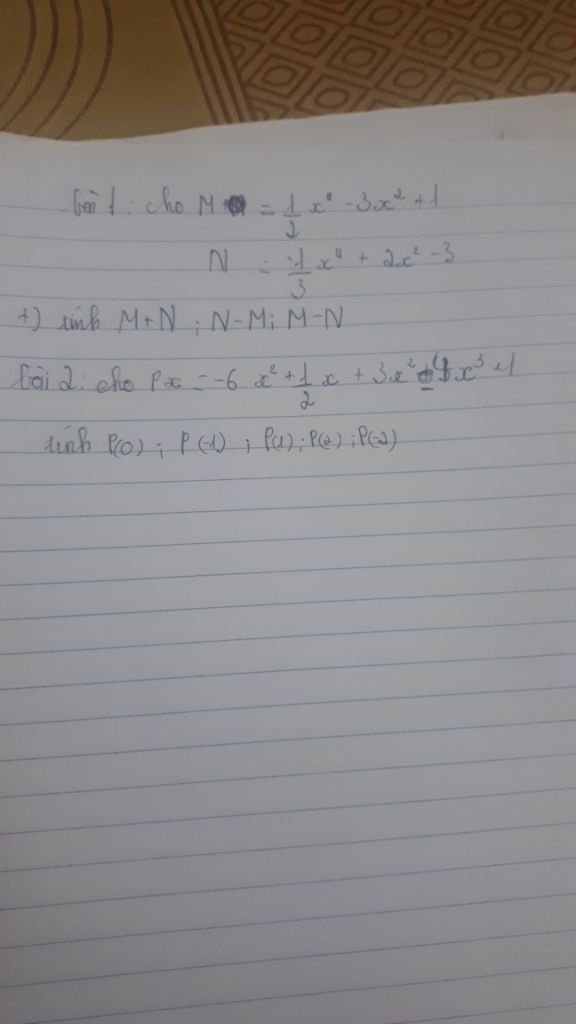 bài 1: cho M = 1/2 x⁴ - 3x² + 1
N = -1/3 x⁴ + 2x² - 3
+) tính M+N ; N-M; M-N
bài 2: cho Px = -6 x² + 1/2 x + 3x² x³ + 1
tính P(0) ; P(-1) ; P(1) ; P(2) ; P(-2)